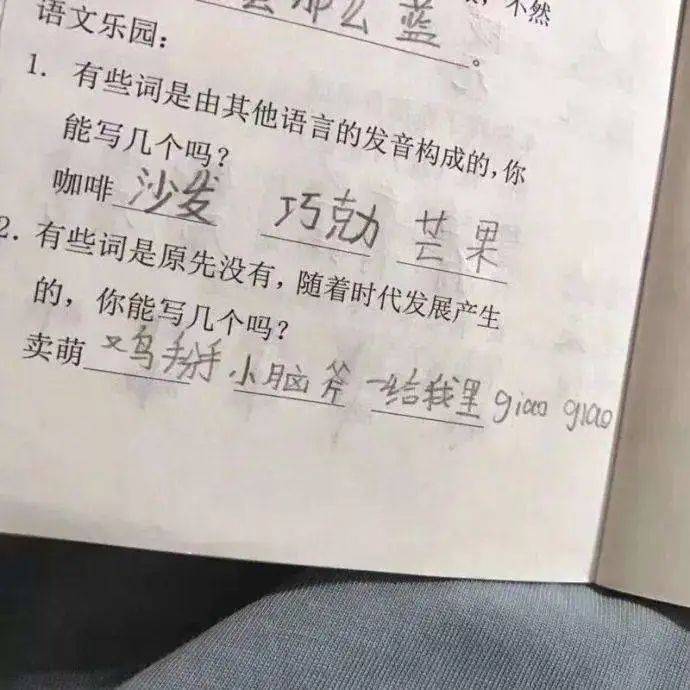 么那么蓝。不然
语文乐园：
1. 有些词是由其他语言的发音构成的，你
能写几个吗？
咖啡 沙发 巧克力 芒果
2. 有些词是原先没有，随着时代发展产生
的，你能写几个吗？
卖萌 鸡掰 小脑斧 一给我里 giao giao